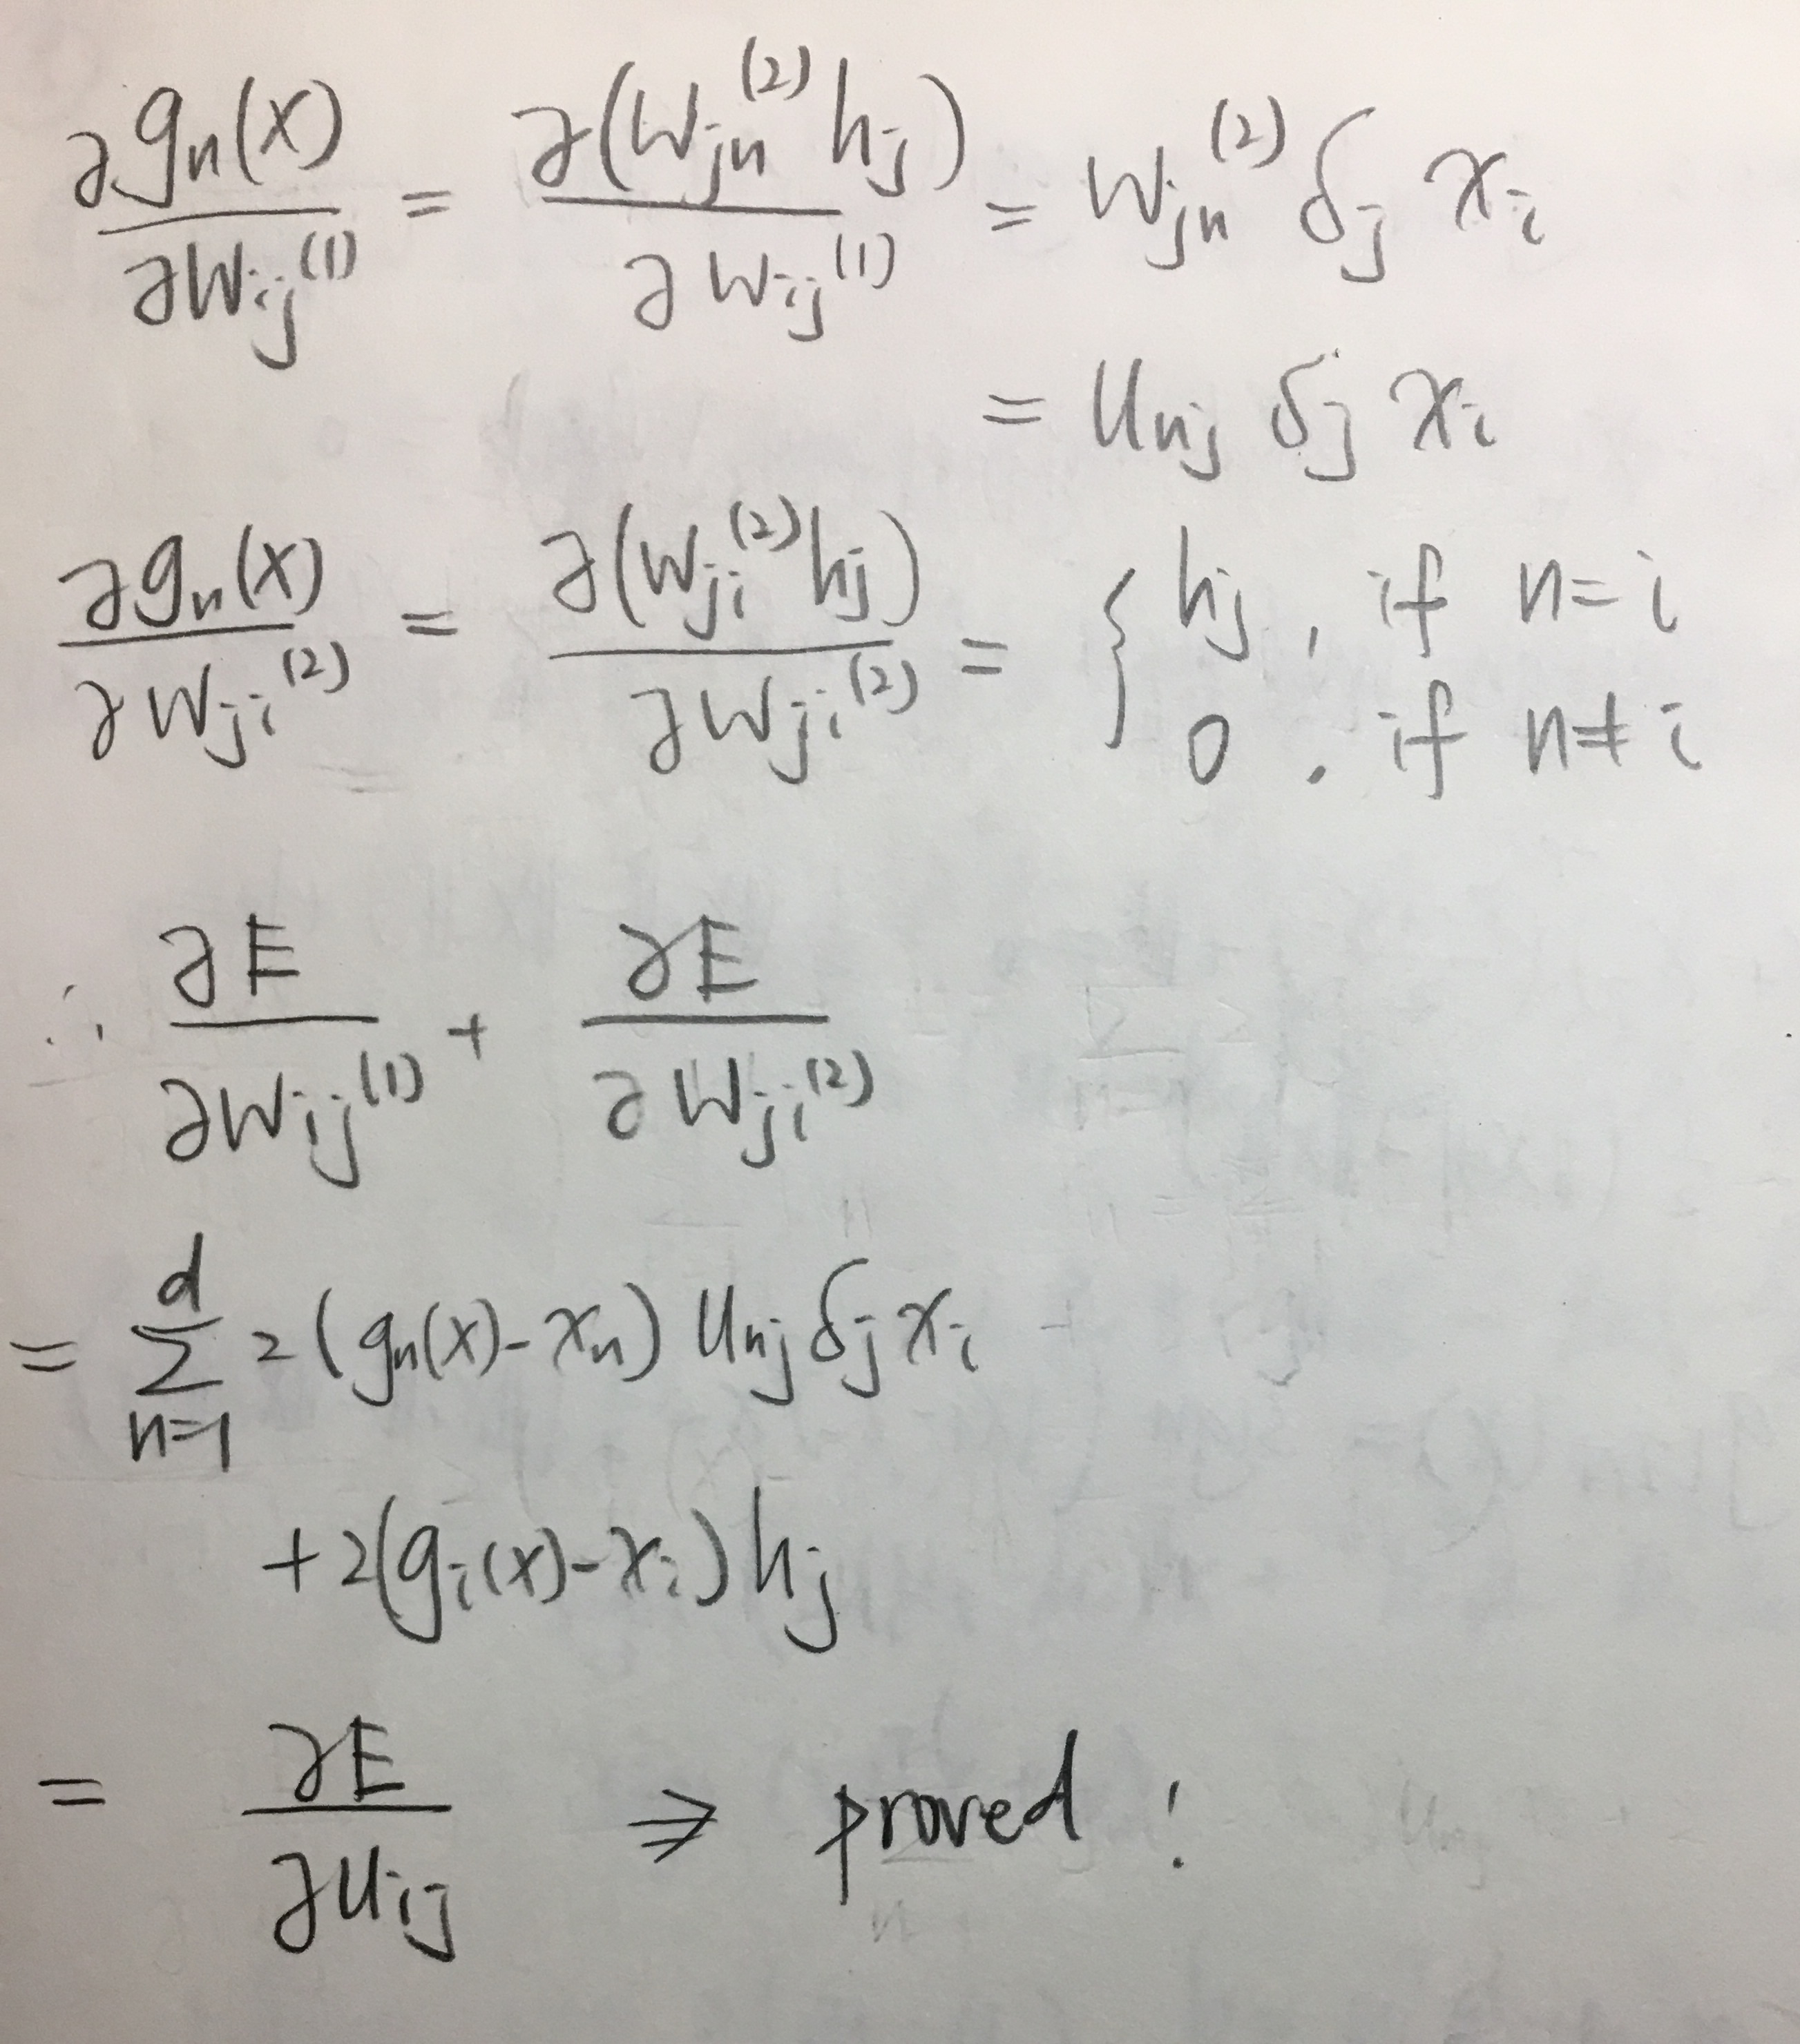 ∂gₙ(x)/∂Wᵢⱼ⁽¹⁾ = ∂(Wⱼₙ⁽²⁾hⱼ)/∂Wᵢⱼ⁽¹⁾ = Wⱼₙ⁽²⁾ δⱼ xᵢ
= uₙⱼ δⱼ xᵢ
∂gₙ(x)/∂Wⱼᵢ⁽²⁾ = ∂(Wⱼᵢ⁽²⁾hⱼ)/∂Wⱼᵢ⁽²⁾ = { hⱼ , if n = i
0 , if n ≠ i
∴ ∂E/∂Wᵢⱼ⁽¹⁾ + ∂E/∂Wⱼᵢ⁽²⁾
= ∑_{n=1}^{d} 2(gₙ(x) - xₙ) uₙⱼ δⱼ xᵢ
+ 2(gᵢ(x) - xᵢ) hⱼ
= ∂E/∂uᵢⱼ ⇒ proved !